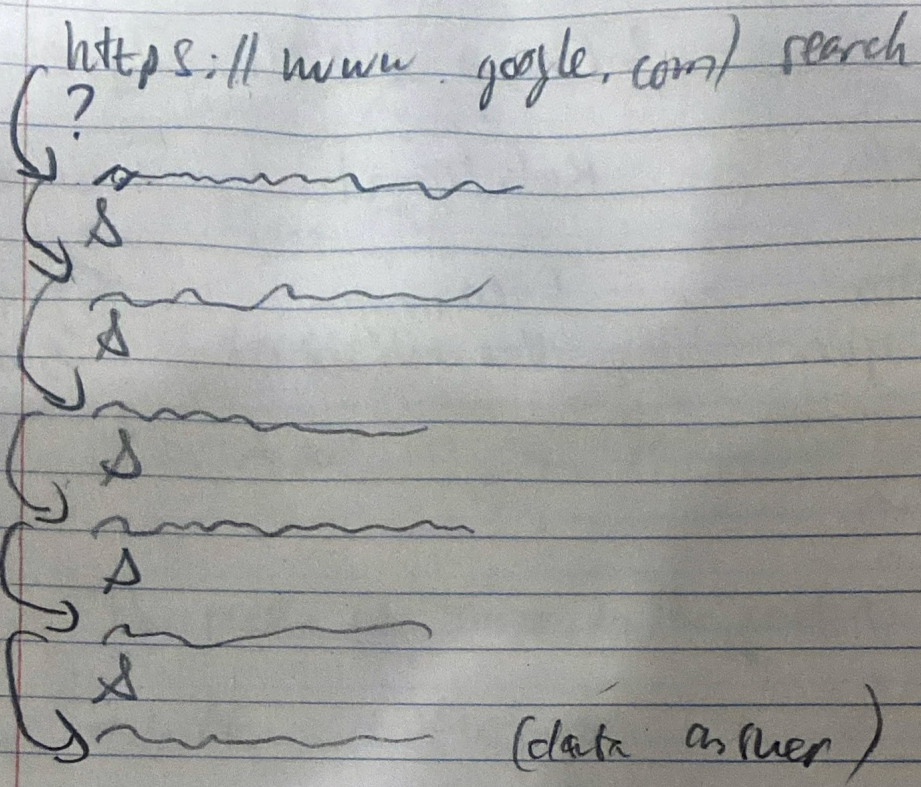 https://www.google.com/search
?
(data answer)